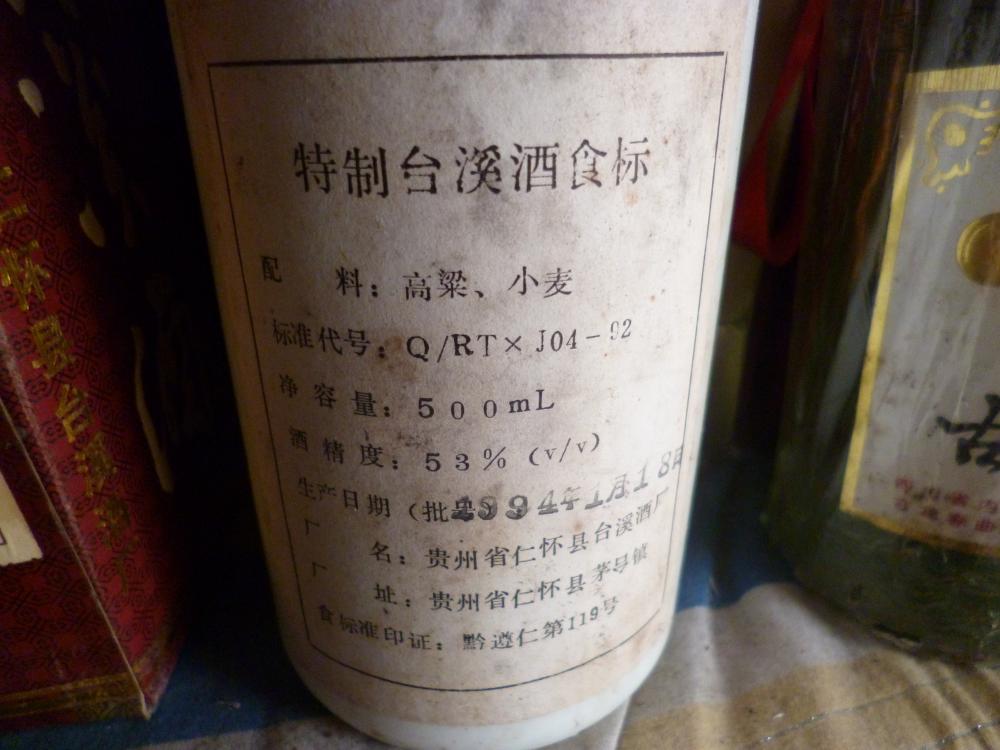 特制台溪酒食标
配 料：高粱、小麦
标准代号：Q/RT×J04-92
净容量：500mL
酒精度：53%（v/v）
生产日期（批号）1994年1月18日
厂 名：贵州省仁怀县台溪酒厂
厂 址：贵州省仁怀县茅台镇
食标准印证：黔遵仁第119号
仁怀县台溪酒厂